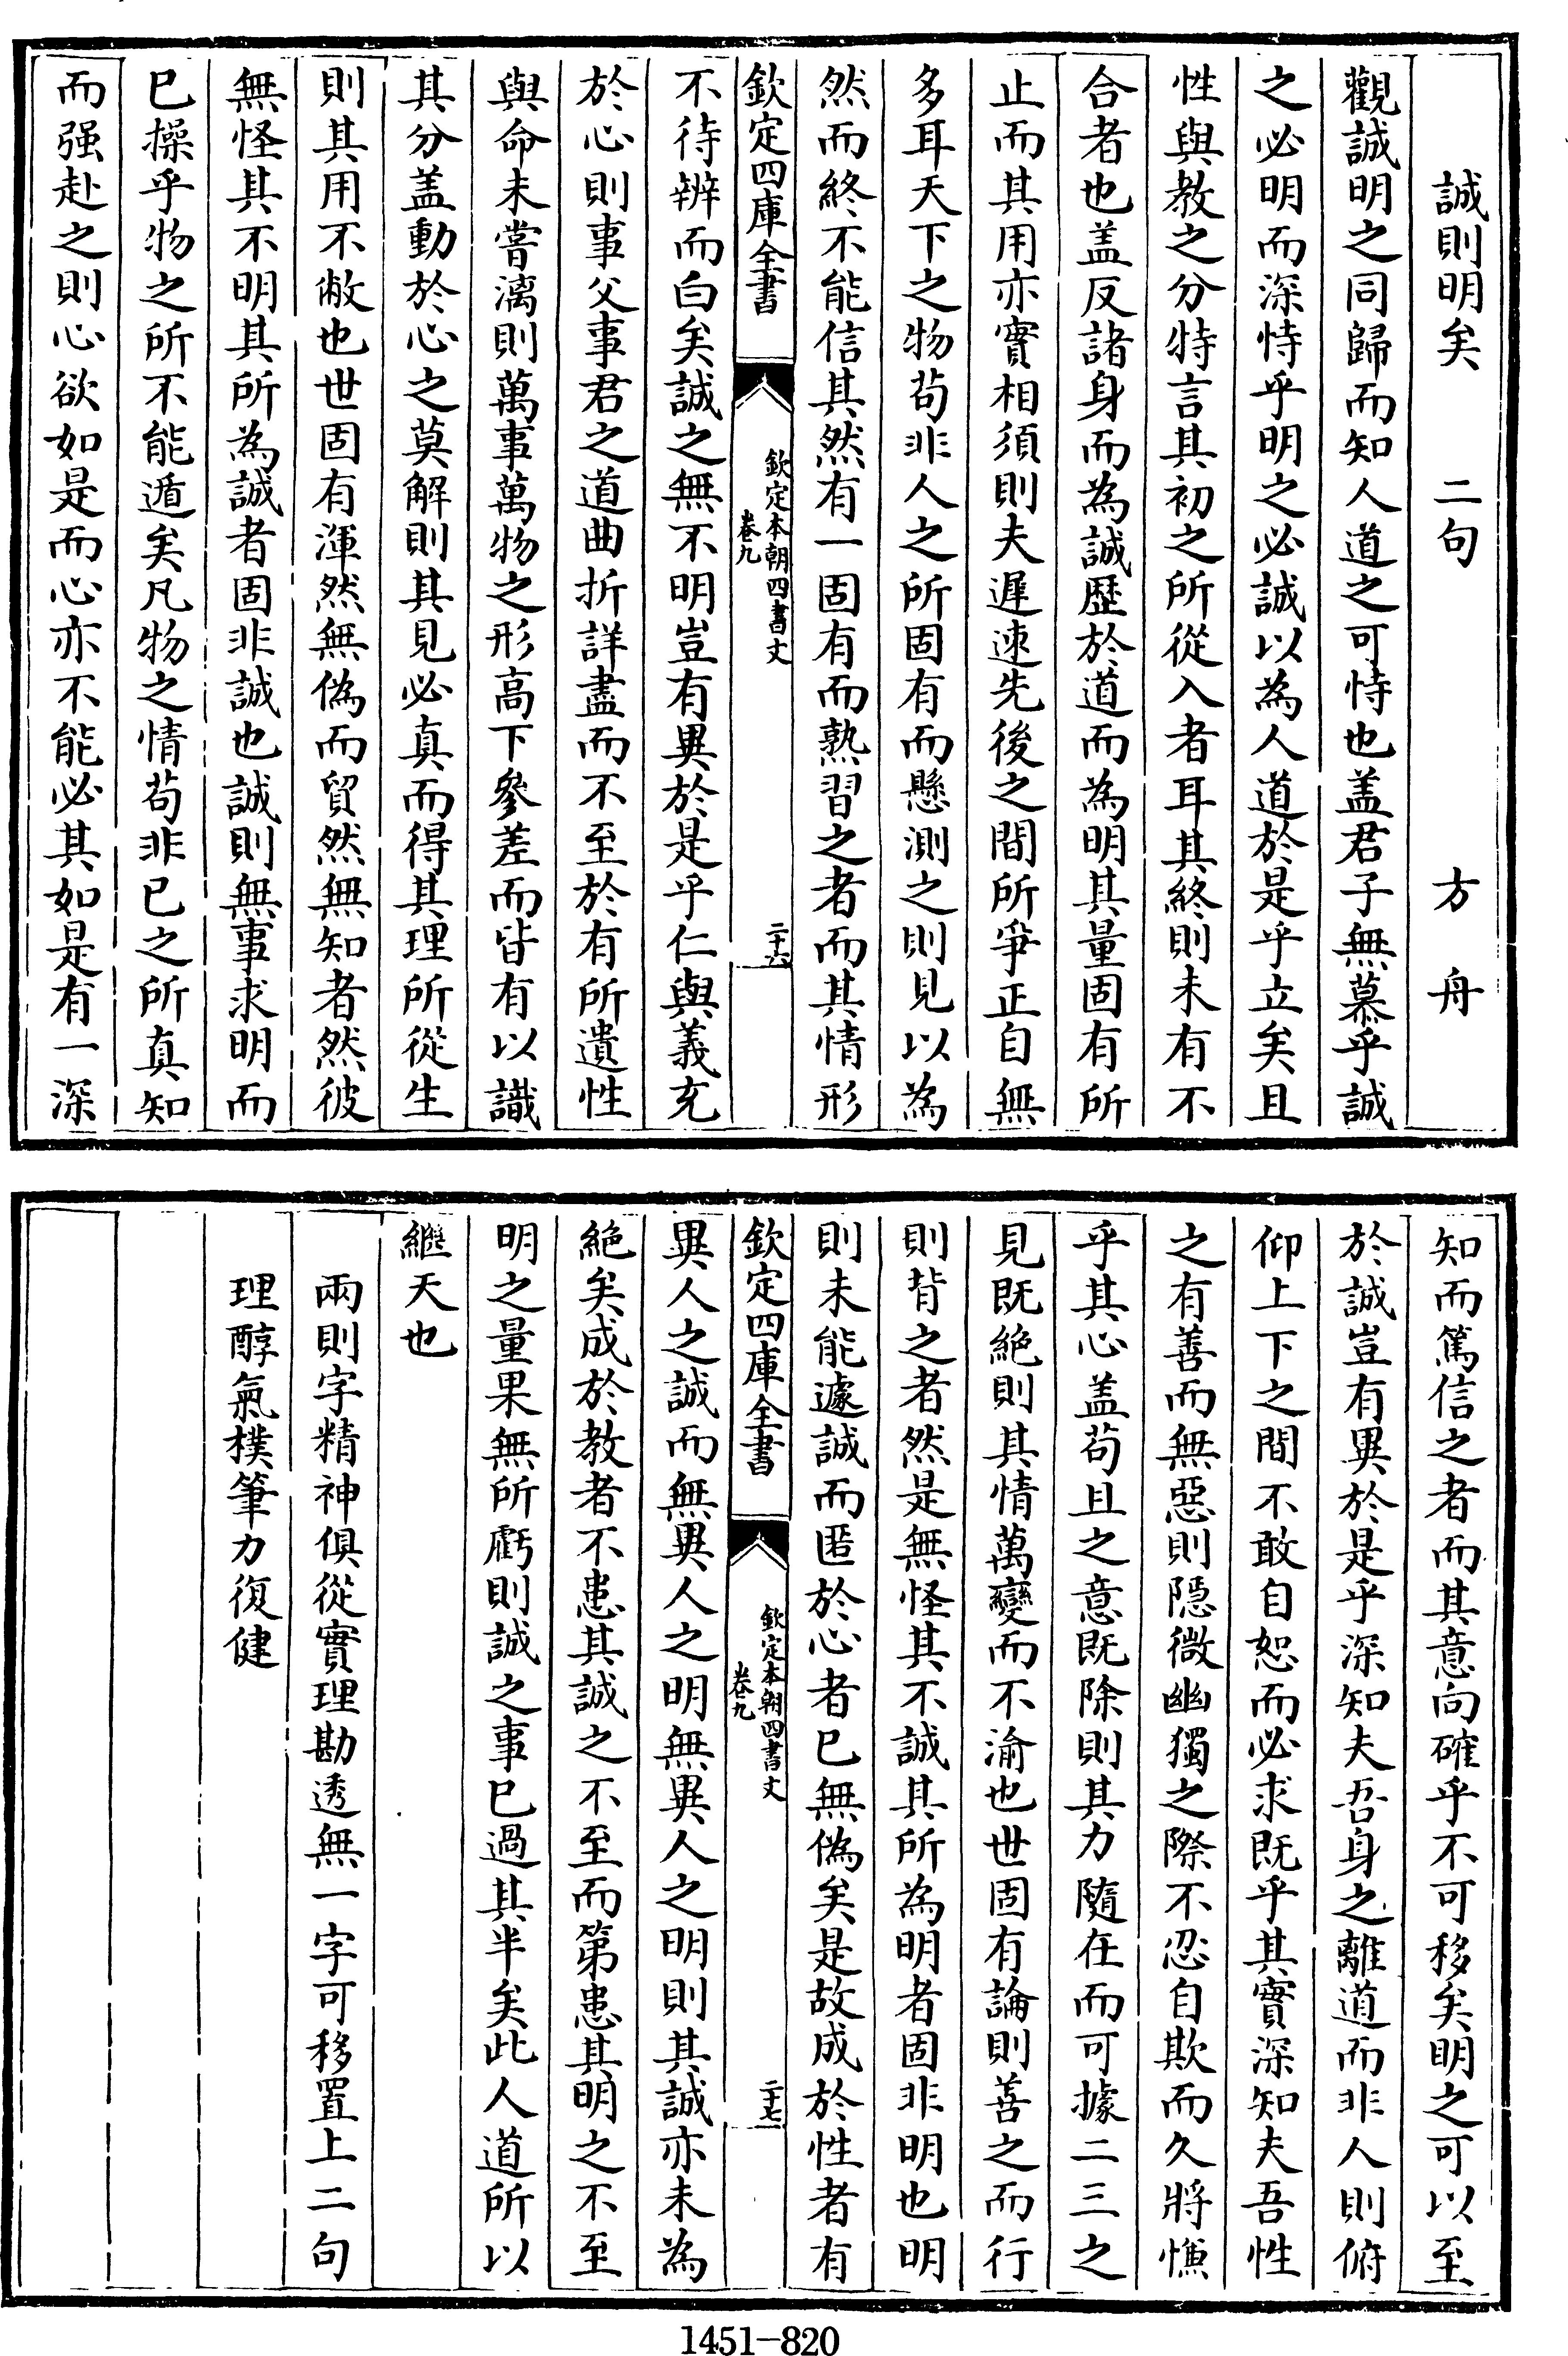 誠則明矣　二句　方舟
觀誠明之同歸而知人道之可恃也盖君子無慕乎誠
之必明而深恃乎明之必誠以為人道於是乎立矣且
性與教之分特言其初之所從入者耳其終則未有不
合者也盖反諸身而為誠歴於道而為明其量固有所
止而其用亦實相須則夫遲速先後之間所爭正自無
多耳天下之物苟非人之所固有而懸測之則見以為
然而終不能信其然有一固有而熟習之者而其情形
欽定四庫全書
欽定本朝四書文
卷九
二十六
不待辨而白矣誠之無不明豈有異於是乎仁與義充
於心則事父事君之道曲折詳盡而不至於有所遺性
與命未嘗漓則萬事萬物之形高下參差而皆有以識
其分盖動於心之莫解則其見必真而得其理所從生
則其用不敝也世固有渾然無偽而貿然無知者然彼
無怪其不明其所為誠者固非誠也誠則無事求明而
已操乎物之所不能遁矣凡物之情苟非已之所真知
而强赴之則心欲如是而心亦不能必其如是有一深
知而篤信之者而其意向確乎不可移矣明之可以至
於誠豈有異於是乎深知夫吾身之離道而非人則俯
仰上下之間不敢自恕而必求既乎其實深知夫吾性
之有善而無惡則隱微幽獨之際不忍自欺而久將慊
乎其心盖苟且之意既除則其力隨在而可據二三之
見既絶則其情萬變而不渝也世固有論則善之而行
則背之者然是無怪其不誠其所為明者固非明也明
則未能遽誠而匿於心者已無偽矣是故成於性者有
欽定四庫全書
欽定本朝四書文
卷九
二十七
異人之誠而無異人之明無異人之明則其誠亦未為
絶矣成於教者不患其誠之不至而第患其明之不至
明之量果無所虧則誠之事已過其半矣此人道所以
繼天也
兩則字精神俱從實理勘透無一字可移置上二句
理醇氣樸筆力復健
1451-820